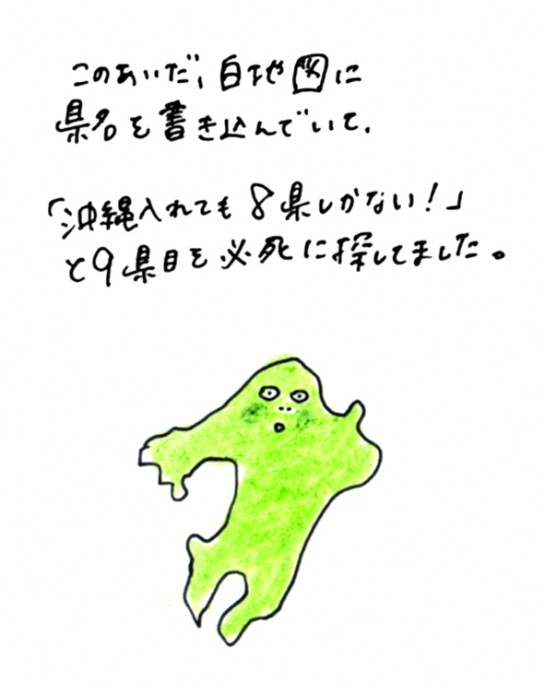 このあいだ、白地図に
県名を書き込んでいて、
「沖縄入れても8県しかない！」
と9県目を必死に探してました。